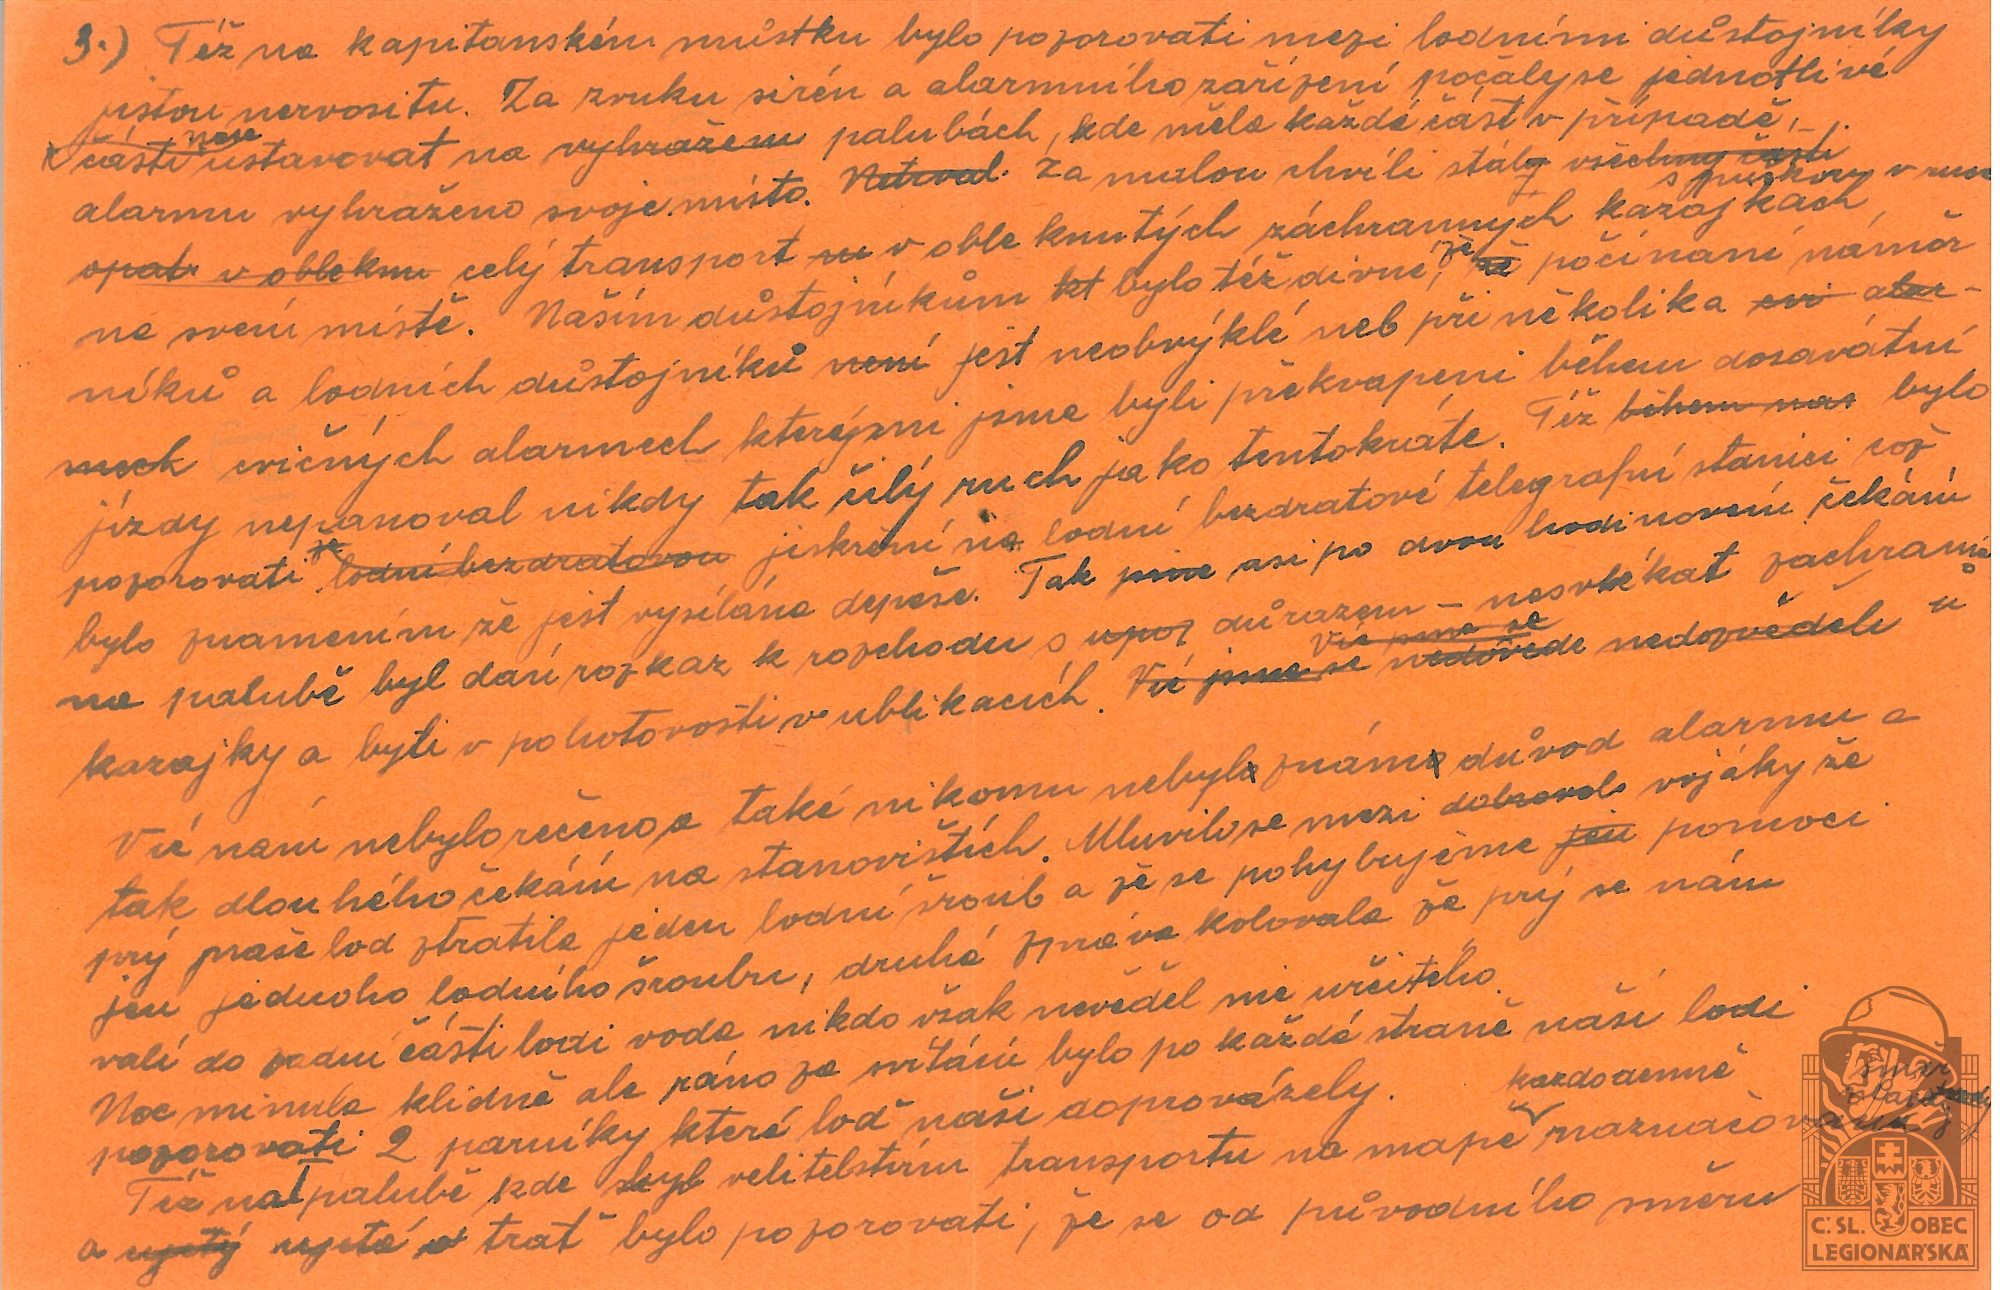 3.) Též na kapitanském můstku bylo pozorovati mezi lodními důstojníky
jistou nervositu. Za zvuku sirén a alarmního zařízení počaly se jednotlivé
části naše ustavovat na vyhraženém palubách, kde měla každá část v případě
alarmu vyhraženo svoje místo. Netrval. Za malou chvíli stály všechny části
s puškou v ruce
opat v obleknu celý transport v obleknutých záchranných kazajkách
na svém místě. Našim důstojníkům kt bylo též divné, že počínaní námoř
níků a lodních důstojníků není jest neobvýklé neb při několika cvi alar-
mech cvičných alarmech kterými jsme byli překvapeni během dosavátní
jízdy nepanoval nikdy tak čilý ruch jako tentokráte. Též během nas bylo
pozorovati že lodní bezdratovou jiskření na lodní bezdratové telegrafní stanici což
bylo znamením že jest vysílána depeše. Tak jsme asi po dvou hodinovém čekání
na palubě byl daní rozkaz k rozchodu s upoz důrazem – nesvlékat zachranné
kazajky a byti v pohotovosti v ublikacích. Víc jsme se nedověde nedozvěděli
Víc jsme se
Víc nám nebylo rečeno a také nikomu nebyl znám důvod alarmu a
tak dlouhého čekání na stanovištích. Mluvilo se mezi dobrovol vojáky že
prý naše lod ztratila jeden lodní šroub a že se pohybujeme jen pomoci
jen jednoho lodního šroubu, druhá zpráva kolovala že prý se nám
valí do zadní části lodi voda nikdo však nevěděl nic určitého.
Noc minula klidně ale ráno za svítání bylo po každé straně naší lodi
pozorovati 2 parníky které loď naši doprovázely.
každodenně
Též na I palubě kde velitelstvím transportu na mapě naznačována
směr
a ujetý ujetá trať bylo pozorovati, že se od původního směru
Č.SL. OBEC
LEGIONÁŘSKÁ